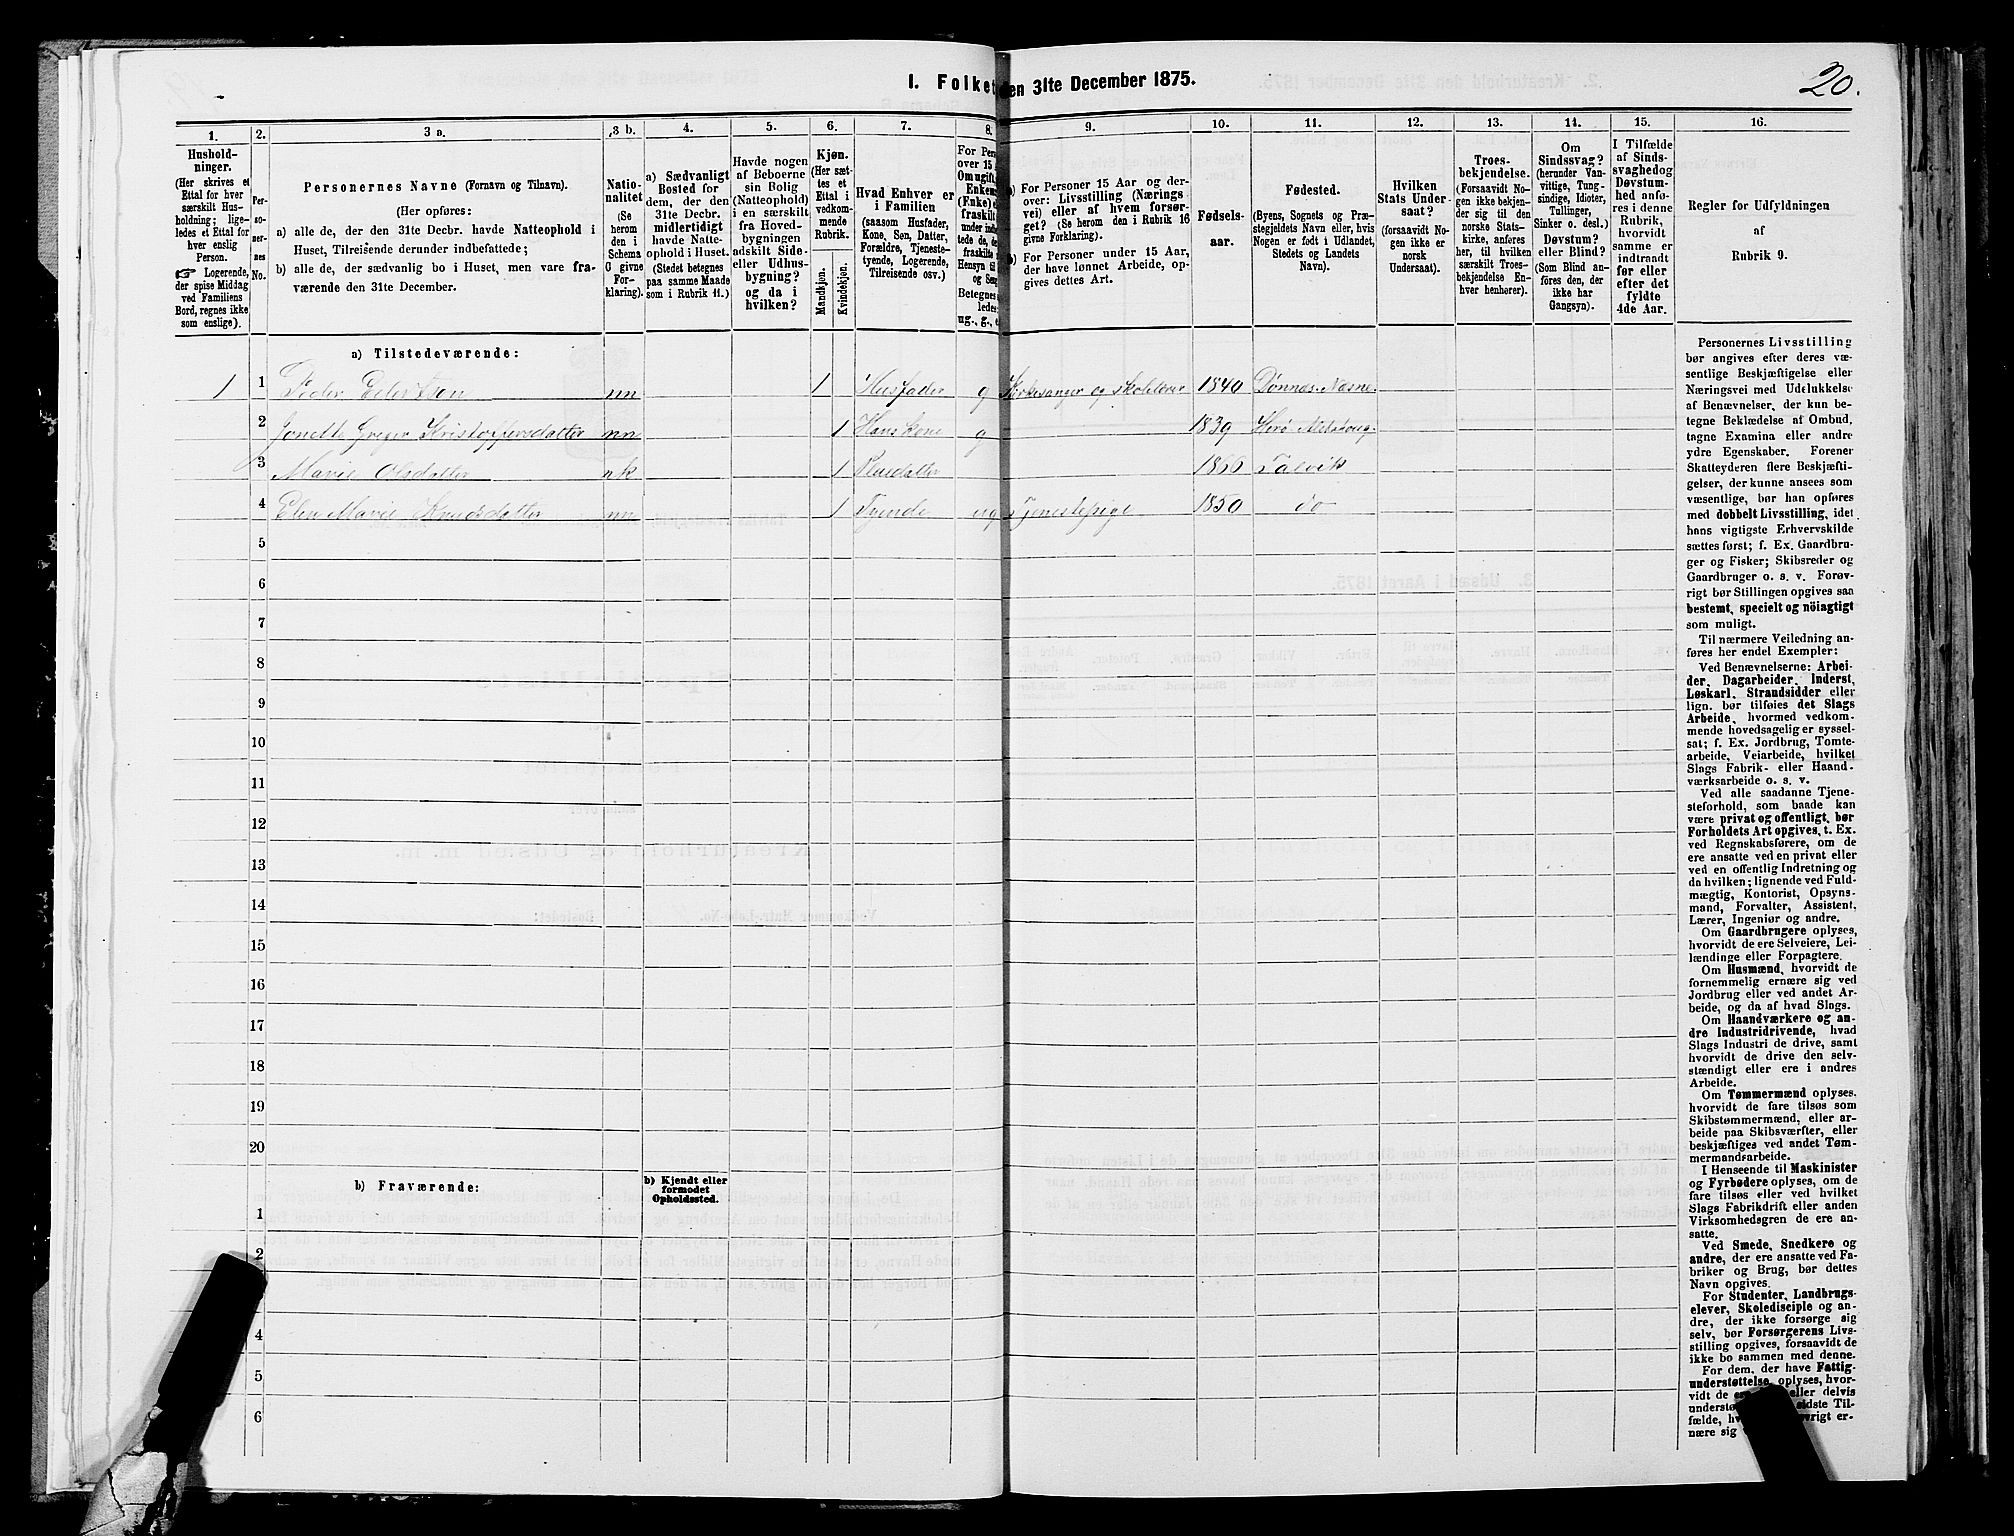 I. Folket
den 31te December 1875.
20.
1.
2.
3 a.
3 b.
4.
5.
6.
7.
8.
9.
10.
11.
12.
13.
14.
15.
16.
Hushold-
ninger.
(Her skrives et
Ettal for hver
særskilt Hus-
holdning; lige-
ledes et Ettal for
hver enslig
Person.
☞ Logerende,
der spise Middag
ved Familiens
Bord, regnes ikke
som enslige).
Per-
so-
ner-
nes
No.
Personernes Navne (Fornavn og Tilnavn).
(Her opføres:
a) alle de, der den 31te Decbr. havde Natteophold i
Huset, Tilreisende derunder indbefattede;
b) alle de, der sædvanlig bo i Huset, men vare fra-
værende den 31te December.
Natio-
nalitet
(Se
herom
den i
Schema
O givne
For-
klaring).
a) Sædvanligt
Bosted for
dem, der den
31te Decbr.
midlertidigt
havde Natte-
ophold i Huset.
(Stedet betegnes
paa samme Maade
som i Rubrik 11.)
Havde nogen
af Beboerne
sin Bolig
(Natteophold)
i en særskilt
fra Hoved-
bygningen
adskilt Side-
eller Udhus-
bygning?
og da i
hvilken?
Kjøn.
(Her sæt-
tes et
Ettal i
vedkom-
mende
Rubrik.
Mandkjøn.
Kvindekjøn.
Hvad Enhver er
i Familien
(saasom Husfader,
Kone, Søn, Datter,
Forældre, Tjeneste-
tyende, Logerende,
Tilreisende osv.)
For Pers
over 15
Om ugift,
Enkem
(Enke) e
fraskilt
under indt
tede de, de
fraskilte
Hensyn til
og Sen
Betegnes
ledes
ug., g., e
a) For Personer 15 Aar og der-
over: Livsstilling (Nærings
vei) eller af hvem forsør-
get? (Se herom den i Rubrik 16
givne Forklaring).
b) For Personer under 15 Aar,
der have lønnet Arbeide, op-
gives dettes Art.
Fødsels-
aar.
Fødested.
(Byens, Sognets og Præ-
stegjeldets Navn eller, hvis
Nogen er født i Udlandet,
Stedets og Landets
Navn).
Hvilken
Stats Under-
saat?
(forsaavidt No-
gen ikke er
norsk
Undersaat).
Troes-
bekjendelse.
(Forsaavidt No-
gen ikke bekjen-
der sig til den
norske Stats-
kirke, anføres
her, til hvilken
særskilt Troes-
bekjendelse En-
hver henhører).
Om
Sindssvag?
(herunder Van-
vittige, Tung-
sindige, Idioter,
Tullinger,
Sinker o. desl.)
Døvstum?
eller Blind?
(Som Blind an-
føres den, der
ikke har
Gangsyn).
I Tilfælde
af Sinds-
svaghed og
Døvstum-
hed anfø-
res i denne
Rubrik,
hvorvidt
samme er
indtraadt
før eller
efter det
fyldte
4de Aar.
Regler for Udfyldningen
af
Rubrik 9.
a) Tilstedeværende:
1 1 Peder Edertson nn 1 Husfader g Kirkesanger og Skolelærer 1840 Dønnes Næsne
2 Jonette Greger Kristoffersdatter nn 1 Hans Kone g 1839 Herø Alstahoug
3 Marie Olsdatter nk 1 Pleiedatter 1866 Talvik
4 Elen Marie Knudsdatter nn 1 Tyende ug Tjenestepige 1850 do
5
6
7
8
9
10
11
12
13
14
15
16
17
18
19
20
b) Fraværende:
b) Kjendt eller
formodet
Opholdssted.
1
2
4
5
6
Personernes Livsstilling
bør angives efter deres væ-
sentlige Beskjæftigelse eller
Næringsvei med Udelukkelse
af Benævnelser, der kun be-
tegne Beklædelse af Ombud,
tagne Examina eller andre
ydre Egenskaber. Forener
Skatteyderen flere Beskjæfti-
gelser, der kunne ansees som
væsentlige, bør han opføres
med dobbelt Livsstilling, idet
hans vigtigste Erhvervskilde
sættes først; f. Ex. Gaardbru-
ger og Fisker; Skibsreder og
Gaardbruger o. s. v. Forøv-
rigt bør Stillingen opgives saa
bestemt, specielt og nöiagtigt
som muligt.
Til nærmere Veiledning an-
føres her endel Exempler:
Ved Benævnelserne: Arbei-
der, Dagarbeider, Inderst,
Løskarl, Strandsidder eller
lign. bør tilføies det Slags
Arbeide, hvormed vedkom-
mende hovedsagelig er syssel-
sat; f. Ex. Jordbrug, Tomte-
arbeide, Veiarbeide, hvilket
Slags Fabrik- eller Haand-
værksarbeide o. s. v.
Ved alle saadanne Tjene-
steforhold, som baade kan
være privat og offentligt, bør
Forholdets Art opgives, t. Ex.
ved Regnskabsførere, om de
ere ansatte ved en privat eller
ved en offentlig Indretning og
da hvilken; lignende ved Fuld-
mægtig, Kontorist, Opsyns-
mand, Forvalter, Assistent,
Lærer, Ingeniør og andre.
Om Gaardbrugere oplyses,
hvorvidt de ere Selveiere, Lei-
lændinge eller Forpagtere.
Om Husmænd, hvorvidt de
fornemmelig ernære sig ved
Jordbrug eller ved andet Ar-
beide, og da af hvad Slags.
Om Haandværkere og an-
dre Industridrivende, hvad
Slags Industri de drive, samt
hvorvidt de drive den selv-
stændigt eller ere i andres
Arbeide.
Om Tømmermænd oplyses,
hvorvidt de fare tilsøs som
Skibstømmermænd, eller ar-
beide paa Skibsværfter, eller
beskjæftiges ved andet Tøm-
mermandsarbeide.
I Henseende til Maskinister
og Fyrbødere oplyses, om de
fare tilsøs eller ved hvilket
Slags Fabrikdrift eller anden
Virksomhedsgren de ere an-
satte.
Ved Smede, Snedkere og
andre, der ere ansatte ved Fa-
briker og Brug, bør dettes
Navn opgives.
For Studenter, Landbrugs-
elever, Skoledisciple og an-
dre, der ikke forsørge sig
selv, bør Forsørgerens Livs-
stilling opgives, forsaavidt de
ikke bo sammen med denne.
For dem, der have Fattig-
understøttelse, oplyses, hvor-
vidt de eller delvis
understø sidste Til-
fælde, h øvrigt er-
nære sig